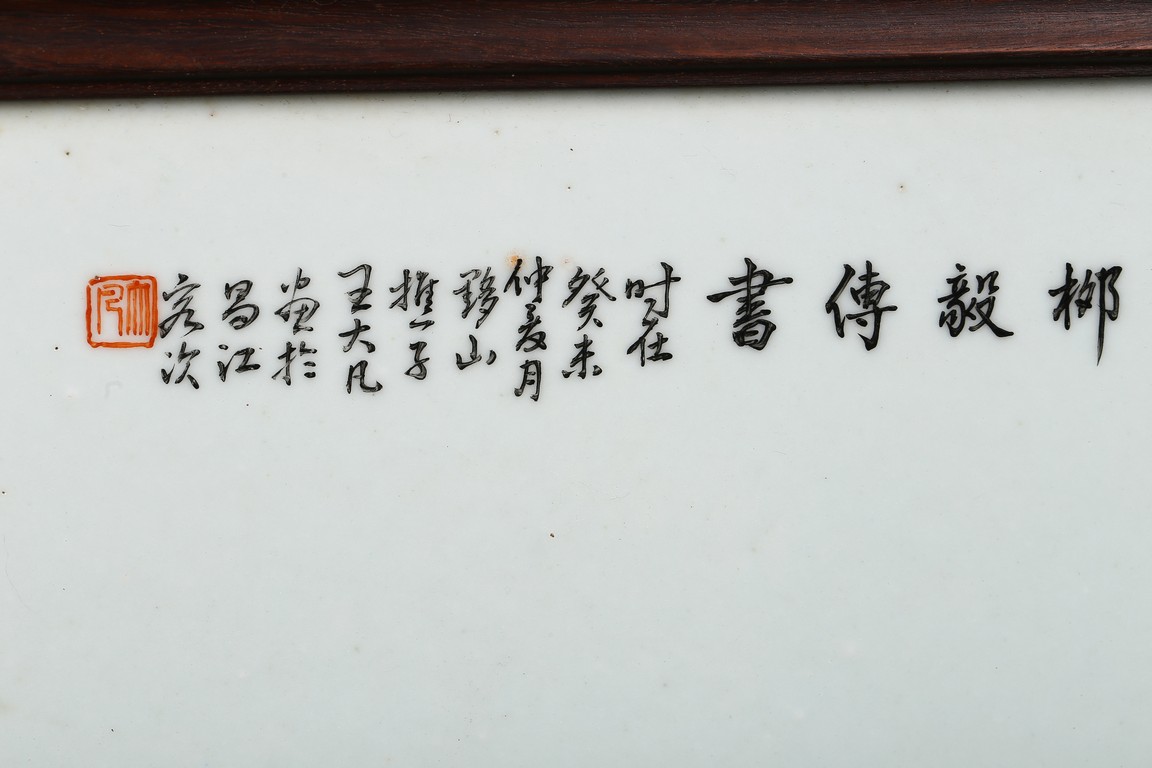 柳毅傳書
时在
癸未
仲夏月
黟山
樵子
王大凡
畫於
昌江
客次
大凡